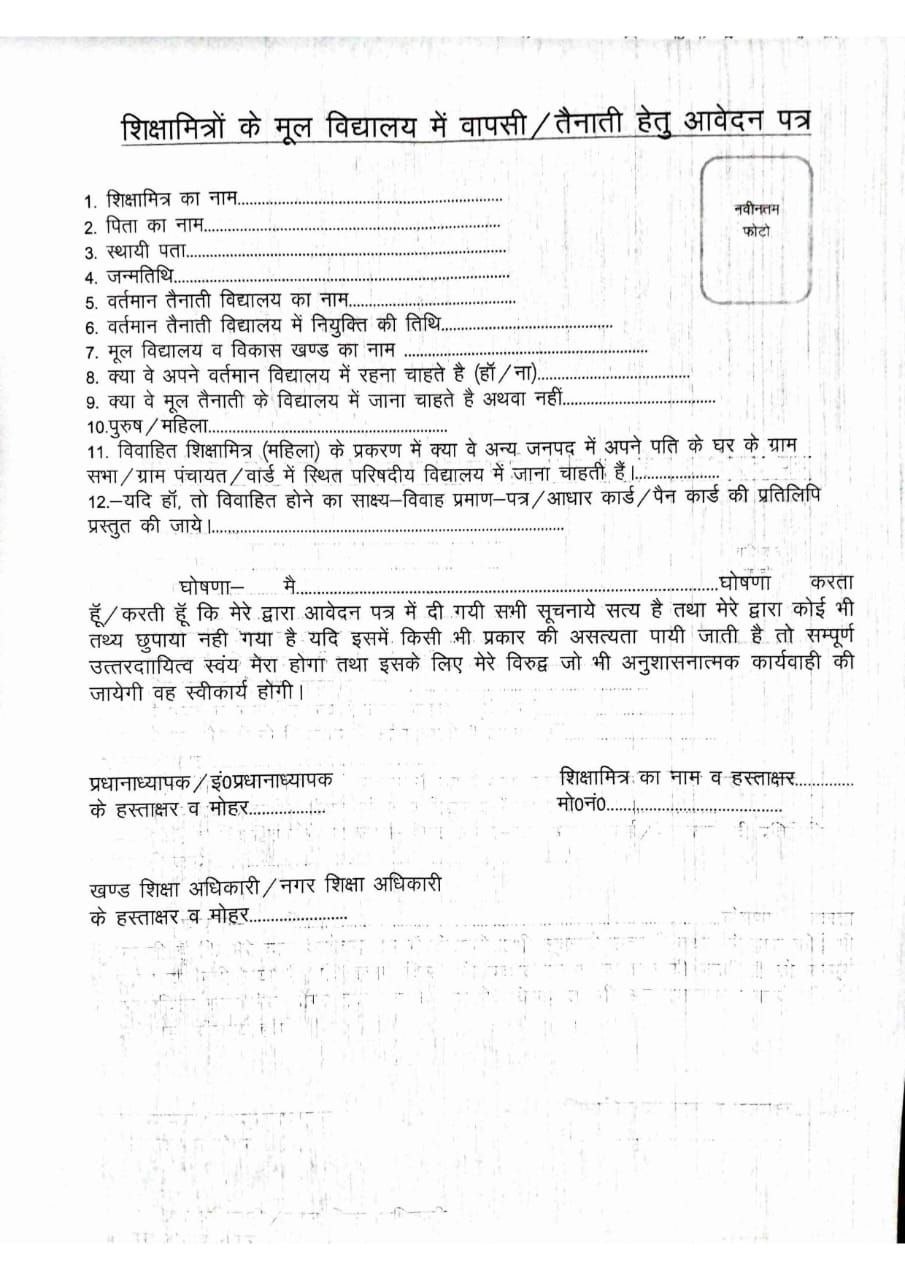 शिक्षामित्रों के मूल विद्यालय में वापसी/तैनाती हेतु आवेदन पत्र
नवीनतम
फोटो
1. शिक्षामित्र का नाम..........................................................
2. पिता का नाम..................................................................
3. स्थायी पता.......................................................................
4. जन्मतिथि..........................................................................
5. वर्तमान तैनाती विद्यालय का नाम.....................................
6. वर्तमान तैनाती विद्यालय में नियुक्ति की तिथि......................................
7. मूल विद्यालय व विकास खण्ड का नाम ......................................................
8. क्या वे अपने वर्तमान विद्यालय में रहना चाहते है (हॉ/ना)..................................
9. क्या वे मूल तैनाती के विद्यालय में जाना चाहते है अथवा नहीं..................................
10.पुरुष/महिला.....................................................
11. विवाहित शिक्षामित्र (महिला) के प्रकरण में क्या वे अन्य जनपद में अपने पति के घर के ग्राम
सभा/ग्राम पंचायत/वार्ड में स्थित परिषदीय विद्यालय में जाना चाहती हैं।...................
12.–यदि हॉ, तो विवाहित होने का साक्ष्य–विवाह प्रमाण–पत्र/आधार कार्ड/पैन कार्ड की प्रतिलिपि
प्रस्तुत की जाये।..............................................................................
घोषणा– मै..............................................................................................घोषणा करता
हूँ/करती हूँ कि मेरे द्वारा आवेदन पत्र में दी गयी सभी सूचनाये सत्य है तथा मेरे द्वारा कोई भी
तथ्य छुपाया नही गया है यदि इसमें किसी भी प्रकार की असत्यता पायी जाती है तो सम्पूर्ण
उत्तरदाायित्व स्वंय मेरा होगा तथा इसके लिए मेरे विरुद्व जो भी अनुशासनात्मक कार्यवाही की
जायेगी वह स्वीकार्य होगी।
प्रधानाध्यापक/इं0प्रधानाध्यापक
के हस्ताक्षर व मोहर.................
शिक्षामित्र का नाम व हस्ताक्षर.............
मो0नं0.......................................
खण्ड शिक्षा अधिकारी/नगर शिक्षा अधिकारी
के हस्ताक्षर व मोहर......................